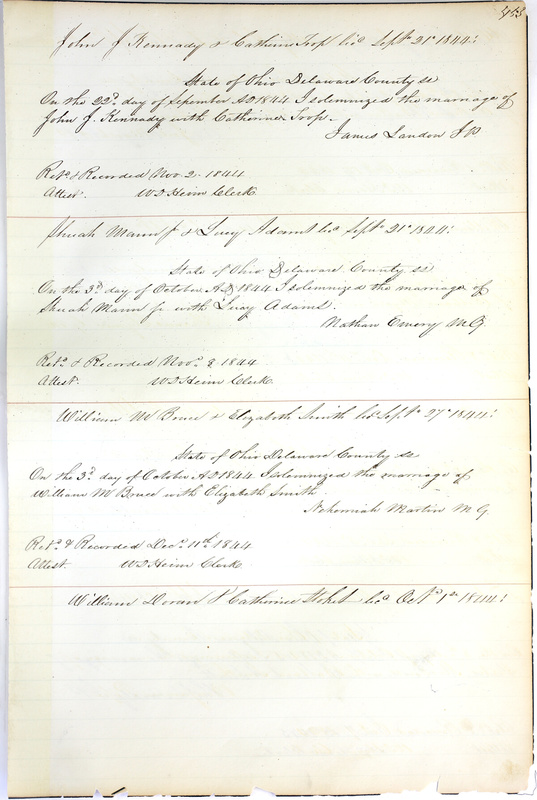 John J Kennady & Catherine Troop lic Sept 21st 1844:
State of Ohio Delaware County ss
On the 22d day of September AD 1844 I solemnized the marriage of
John J. Kennady with Catherine Troop.
James Landon J P
Retd & Recorded Nov 2. 1844
Attest. W D Heim Clerk
Mann Jr & Lucy Adams lic Sept 21st 1844:
State of Ohio Delaware County ss
On the 3d day of October AD 1844 I solemnized the marriage of
Mann jr with Lucy Adams.
Nathan Emery M G
Retd & Recorded Novr 1844
Attest. W D Heim Clerk
William M Bruce & Elizabeth Smith lic Sept 27th 1844:
State of Ohio Delaware County ss
On the 3d day of October AD 1844 I solemnized the marriage of
William M Bruce with Elizabeth Smith
Nehemiah Martin M G
Retd & Recorded Decr 11th 1844
Attest W D Heim Clerk
William Doran & Catherine lic Octr 1st 1844: